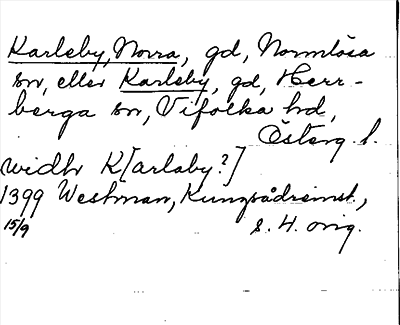 Karleby, Norra, gd, Normlösa
sn, eller Karleby, gd, Herr-
berga sn, Vifolka hd,
Österg. l.
widh K[arlaby?]
1399 Westman, Kungsådreinst.,
15/9 s. 4. orig.